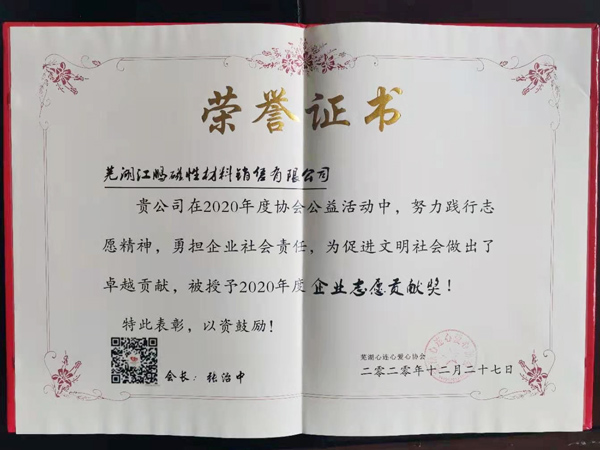 荣誉证书
芜湖江鹏磁性材料销售有限公司
贵公司在2020年度协会公益活动中，努力践行志
愿精神，勇担企业社会责任，为促进文明社会做出了
卓越贡献，被授予2020年度企业志愿贡献奖！
特此表彰，以资鼓励！
芜湖心连心爱心协会
会长：张治中
二〇二〇年十二月二十七日